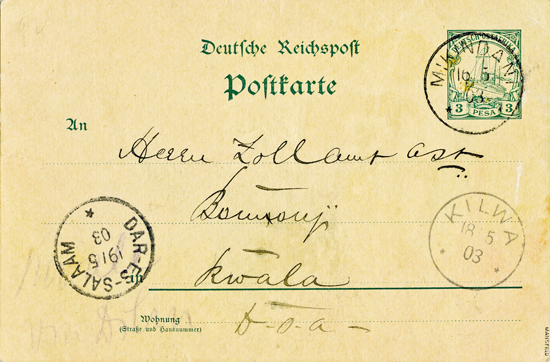 Deutsche Reichspost
Postkarte
DEUTSCH-OSTAFRIKA
3 PESA 3
MIKINDANI
16 5
03
An
Herrn Zollamt asst
KILWA
18 5
03
DAR-ES-SALAAM
19/5
03
in
Kwala
Wohnung
(Straße und Hausnummer)
D-O-a-